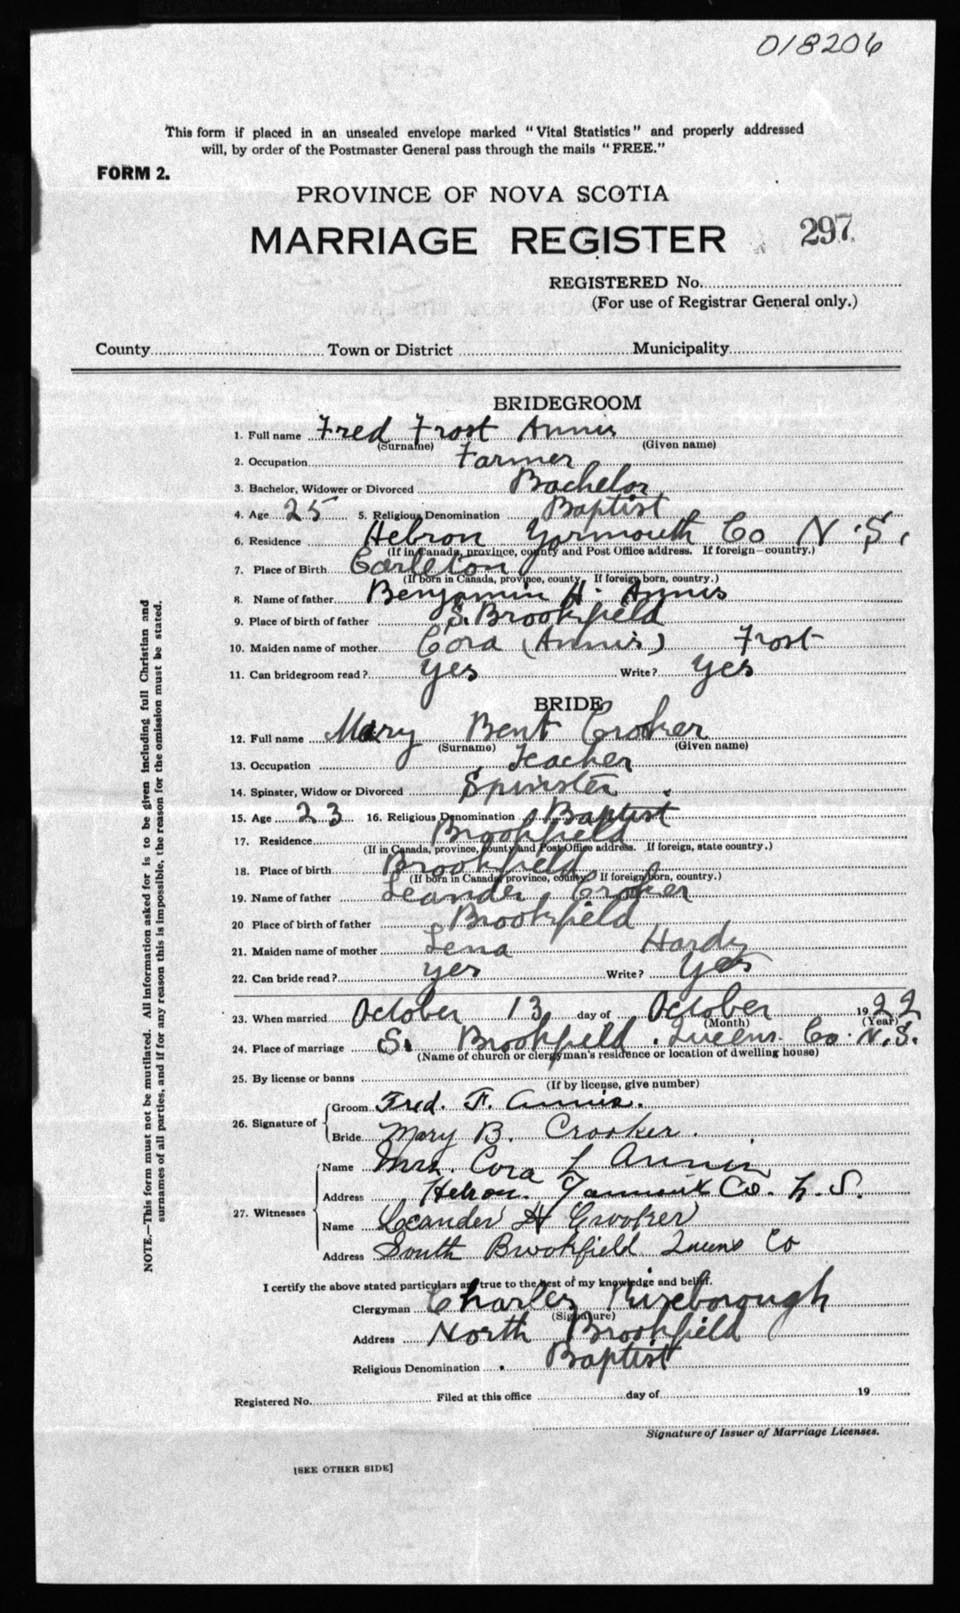 018206
This form if placed in an unsealed envelope marked "Vital Statistics" and properly addressed
will, by order of the Postmaster General pass through the mails "FREE."
FORM 2.
PROVINCE OF NOVA SCOTIA
MARRIAGE REGISTER 297
REGISTERED No.
(For use of Registrar General only.)
County Town or District Municipality
BRIDEGROOM
1. Full name Fred Frost Annis
(Surname) (Given name)
2. Occupation Farmer
3. Bachelor, Widower or Divorced Bachelor
4. Age 25 5. Religious Denomination Baptist
6. Residence Hebron Yarmouth Co N.S.
(If in Canada, province, county and Post Office address. If foreign—country.)
7. Place of Birth Carleton
(If born in Canada, province, county. If foreign born, country.)
8. Name of father Benjamin H. Annis
9. Place of birth of father S. Brookfield
10. Maiden name of mother Cora (Annis) Frost
11. Can bridegroom read? yes Write? yes
BRIDE
12. Full name Mary Bent Croker
(Surname) (Given name)
13. Occupation Teacher
14. Spinster, Widow or Divorced Spinster
15. Age 23 16. Religious Denomination Baptist
17. Residence Brookfield
(If in Canada, province, county and Post Office address. If foreign, state country.)
18. Place of birth Brookfield
(If born in Canada, province, county. If foreign born, country.)
19. Name of father Leander Croker
20 Place of birth of father Brookfield
21. Maiden name of mother Lena Hardy
22. Can bride read? yes Write? yes
23. When married October 13 day of October 1922
(Month) (Year)
24. Place of marriage S. Brookfield. Queens Co. N.S.
(Name of church or clergyman's residence or location of dwelling house)
25. By license or banns
(If by license, give number)
26. Signature of Groom Fred. F. Annis.
Bride Mary B. Crooker.
27. Witnesses Name Mrs. Cora L Annis
Address Hebron. Yarmouth Co. N.S.
Name Leander H Crooker
Address South Brookfield Queens Co
I certify the above stated particulars are true to the best of my knowledge and belief.
Clergyman Charles
(Signature)
Address North Brookfield
Religious Denomination Baptist
Registered No. Filed at this office day of 19
Signature of Issuer of Marriage Licenses.
[SEE OTHER SIDE]
NOTE.—This form must not be mutilated. All information asked for is to be given including full Christian and
surnames of all parties, and if for any reason this is impossible, the reason for the omission must be stated.